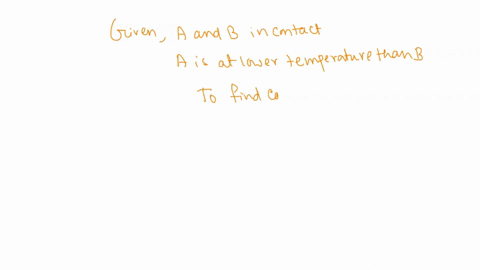 Given, A and B in contact
A is at lower temperature than B
To find co